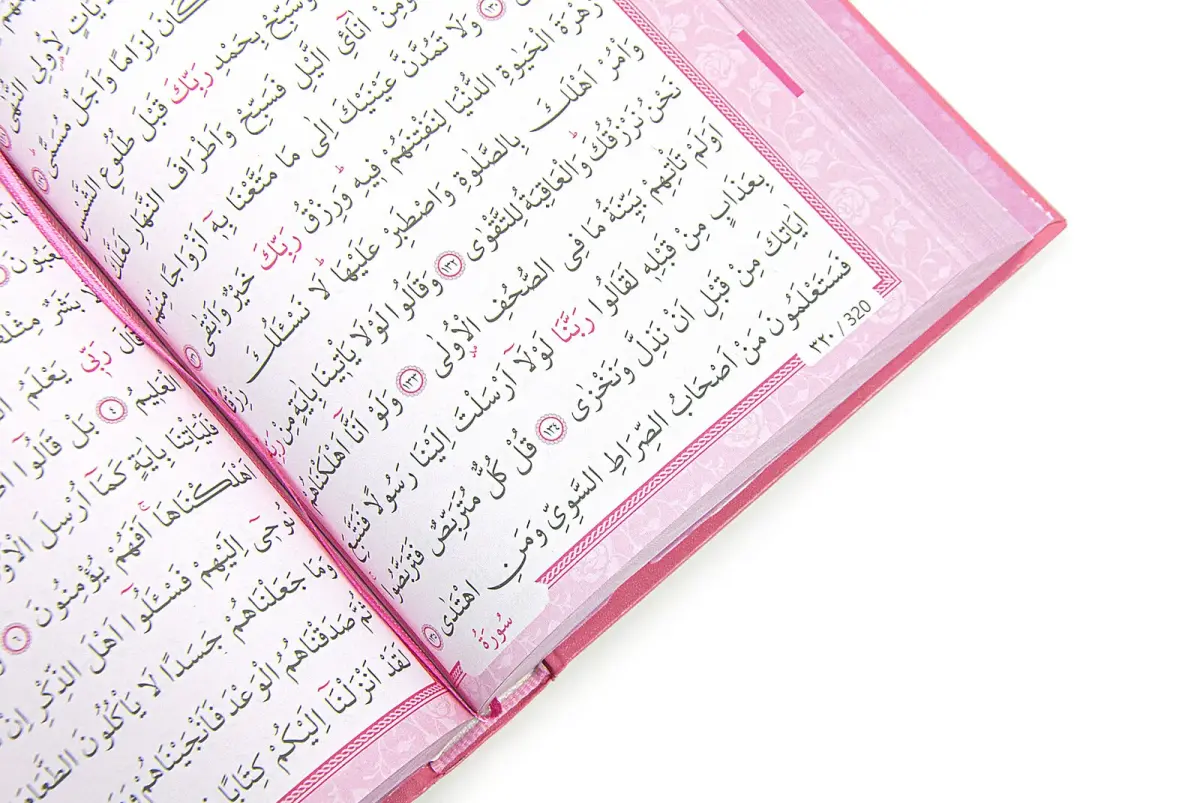 لِاُولِى النُّهٰى
كَانَ لِزَامًا وَاَجَلٌ مُسَمًّى
وَسَبِّحْ بِحَمْدِ رَبِّكَ قَبْلَ طُلُوعِ الشَّمْسِ
وَمِنْ اٰنَآئِ الَّيْلِ فَسَبِّحْ وَاَطْرَافَ النَّهَارِ لَعَلَّكَ
﴿١٣٠﴾ وَلَا تَمُدَّنَّ عَيْنَيْكَ اِلٰى مَا مَتَّعْنَا بِهٖٓ اَزْوَاجًا مِنْهُمْ
زَهْرَةَ الْحَيٰوةِ الدُّنْيَا لِنَفْتِنَهُمْ فِيهِ وَرِزْقُ رَبِّكَ خَيْرٌ وَاَبْقٰى
وَاْمُرْ اَهْلَكَ بِالصَّلٰوةِ وَاصْطَبِرْ عَلَيْهَا لَا نَسْـَٔلُكَ رِزْقًا
نَحْنُ نَرْزُقُكَ وَالْعَاقِبَةُ لِلتَّقْوٰى ﴿١٣٢﴾ وَقَالُوا لَوْلَا يَاْتِينَا بِاٰيَةٍ مِنْ
اَوَلَمْ تَاْتِهِمْ بَيِّنَةُ مَا فِى الصُّحُفِ الْاُولٰى ﴿١٣٣﴾ وَلَوْ اَنَّٓا اَهْلَكْنَاهُمْ
بِعَذَابٍ مِنْ قَبْلِهٖ لَقَالُوا رَبَّنَا لَوْلَٓا اَرْسَلْتَ اِلَيْنَا رَسُولًا فَنَتَّبِعَ
اٰيَاتِكَ مِنْ قَبْلِ اَنْ نَذِلَّ وَنَخْزٰى ﴿١٣٤﴾ قُلْ كُلٌّ مُتَرَبِّصٌ فَتَرَبَّصُوا
فَسَتَعْلَمُونَ مَنْ اَصْحَابُ الصِّرَاطِ السَّوِىِّ وَمَنِ اهْتَدٰى ﴿١٣٥﴾
٣٢٠ / 320
سُورَةُ
بَشَرٌ
قَالَ رَبِّى يَعْلَمُ
الْعَلِيمُ ﴿٤﴾ بَلْ قَالُٓوا
فَلْيَاْتِنَا بِاٰيَةٍ كَمَٓا اُرْسِلَ
اَهْلَكْنَاهَا اَفَهُمْ يُؤْمِنُونَ ﴿٦﴾
نُوحِٓى اِلَيْهِمْ فَسْـَٔلُٓوا اَهْلَ الذِّكْرِ اِنْ
وَمَا جَعَلْنَاهُمْ جَسَدًا لَا يَاْكُلُونَ الطَّعَامَ
ثُمَّ صَدَقْنَاهُمُ الْوَعْدَ فَاَنْجَيْنَاهُمْ
لَقَدْ اَنْزَلْنَٓا اِلَيْكُمْ كِتَابًا